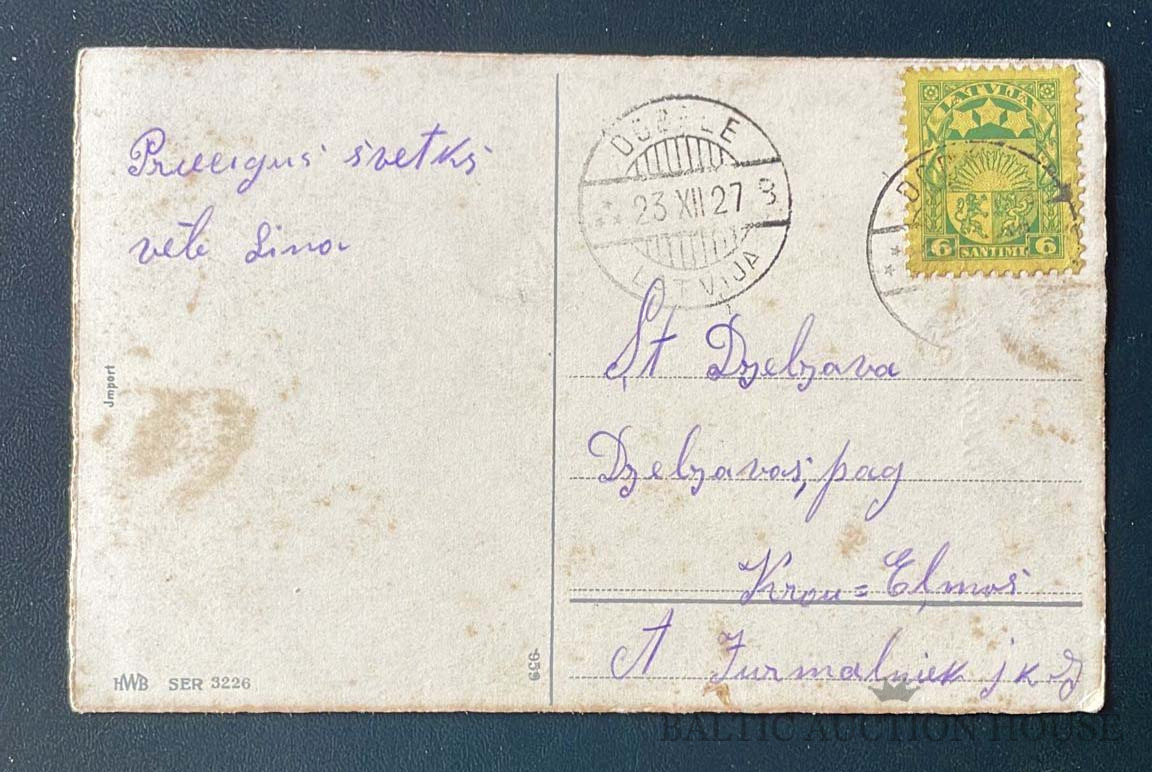 Priecigus svetks
vēle Lina
Jmport
HWB SER 3226
959
DOBELE
23 XII 27 8
LATVIJA
LATVIJA
6 SANTIMI 6
St Dzelzava
Dzelzavas, pag
Kron= Eļmos
A Jurmalniek jk z
BALTIC AUCTION HOUSE